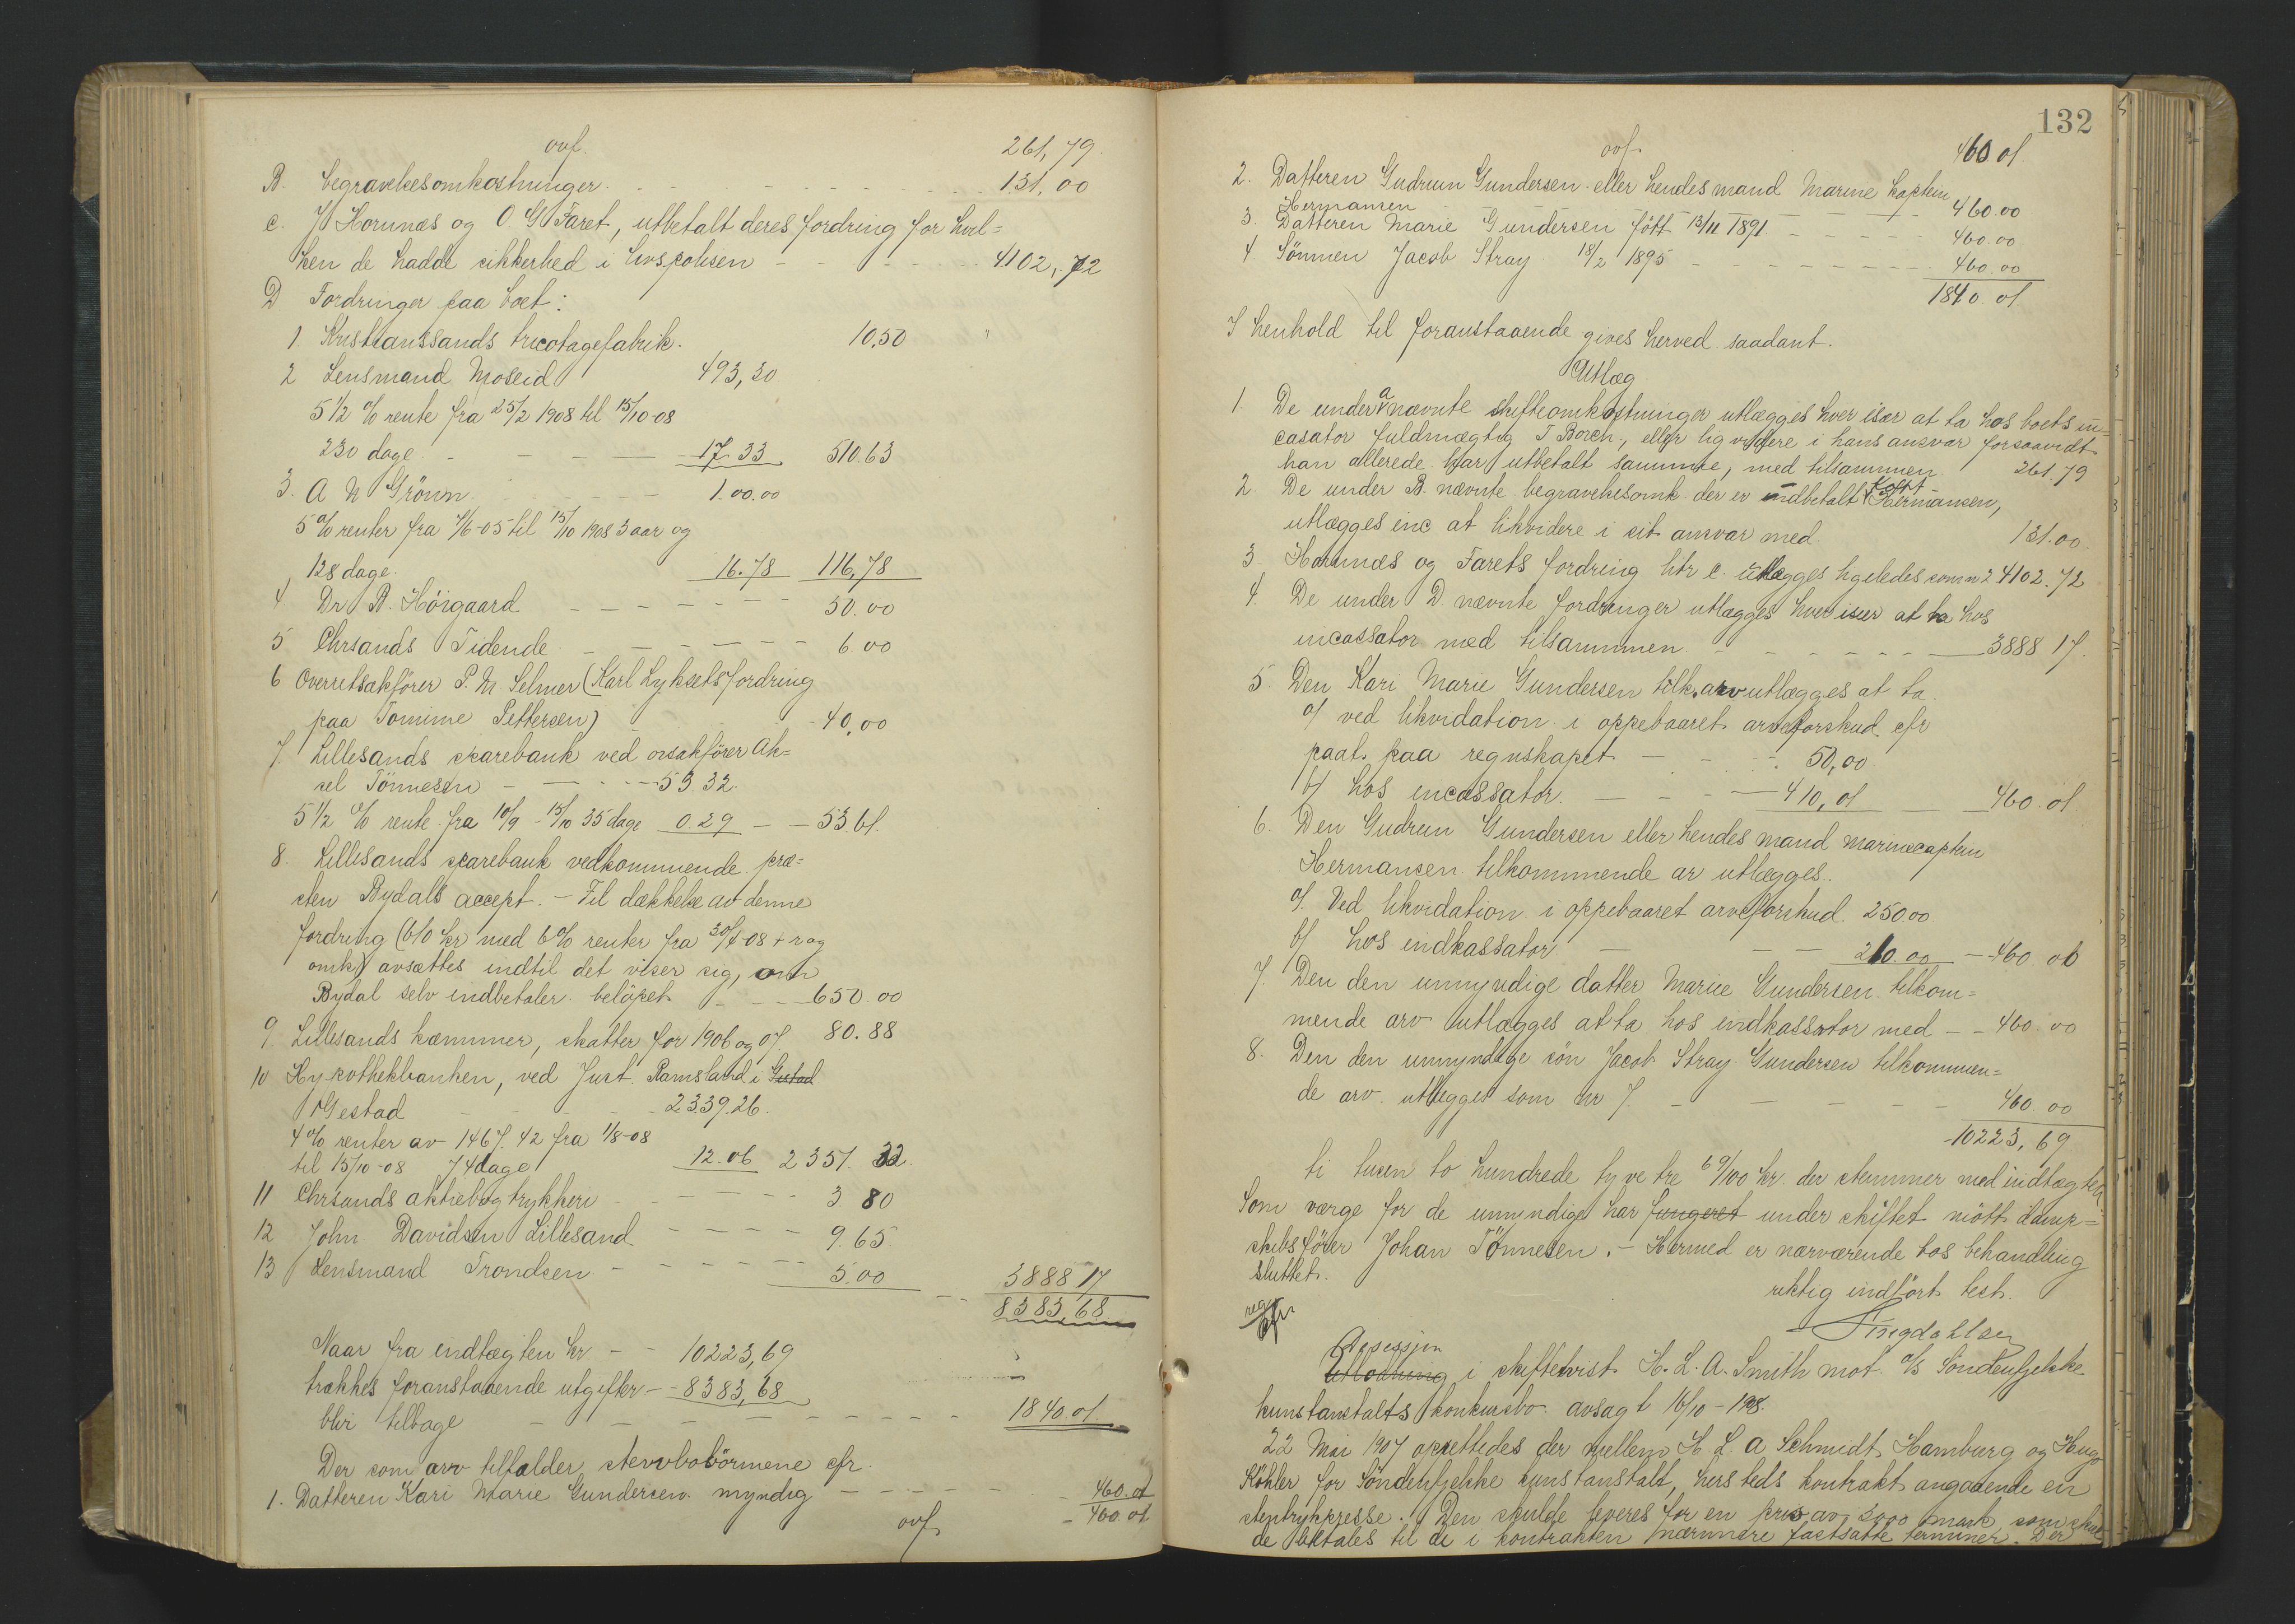 ovf. 261,79.
B. begravelsesomkostninger. - - - - - - 131,00
c. J Hornnæs og O G Faret, utbetalt deres fordring for hvil=
ken de hadde sikkerhed i livspolisen - - - - - 4102,72
D Fordringer paa boet:
1 Kristianssands tricotagefabrik. 10,50 "
2 Lensmand Moseid 493,30
5 1/2 % rente fra 25/2 1908 til 15/10-08
230 dage - - - - 17.33 510.63
3. A N Grönn - - - - 100.00
5 % renter fra 7/6-05 til 15/10 1908 3 aar og
128 dage. 16.78 116,78
4 Dr B. Höigaard - - - - - - 50.00
5 Chrsands Tidende - - - - - 6.00
6 Overretsakförer P. M Selmer (Karl Lyksets fordring
paa Tomine Pettersen) - 40,00
7. Lillesands sparebank ved orsakförer Ak=
sel Tönnesen - - - - 53 32.
5 1/2 % rente fra 10/9 - 15/10 35 dage 0.29 - - 53 61.
8. Lillesands sparebank vedkommende præ=
sten Bydals accept. - Til dækkelse av denne
fordring (610 kr med 6 % renter fra 30/4-08 + r og
omk) avsættes indtil det viser sig, om
Bydal selv indbetaler beløpet - - - 650.00
9. Lillesands kæmner, skatter for 1906 og 07. 80.88
10 Hypothekbanken, ved Just. Ramsland i Gestad
Gestad - - - - - 2339.26.
4 % renter av 1467.42 fra 1/8-08
til 15/10-08 74 dage 12.06 2351.32
11 Chrsands aktiebogtrykkeri - - - - 3.80
12 John Davidsen Lillesand - - - - 9.65
13 Lensmand Trondsen - - - - - 5.00 3888 17
8383,68
Naar fra indtægten kr - - 10223,69
trækkes foranstaaende utgifter - - 8383,68
blir tilbage - - - - - - - - - 1840.01
Der som arv tilfalder stervbobörnene cfr.
1. Datteren Kari Marie Gundersen myndig - - - - - 460.01
ovf - 460 01
132
ovf. 460 01
2. Datteren Gudrun Gundersen eller hendes mand Marine kaptein
Hermansen - - - - - - 460.00
3. Datteren Marie Gundersen født 13/11 1891 - - - - - 460.00
4 Sönnen Jacob Stray 18/2 1895 - - - - - - 460.00
1840.01
I henhold til foranstaaende gives herved saadant.
Utlæg
1. De under A nævnte skifteomkostninger utlægges hver især at ta hos boets in-
casator fuldmægtig T Borch, eller likvidere i hans ansvar forsaavidt
han allerede har utbetalt samme, med tilsammen 261.79
2. De under B. nævnte begravelsesomk. der er indbetalt Kapt Hermansen,
utlægges inc at likvidere i sit ansvar med. 131.00.
3. Hornnæs og Farets fordring litr c. utlægges ligeledes som n 2 4102.72
4. De under D nævnte fordringer utlægges hver især at ta hos
incassator med tilsammen - - - - - - 3888 17.
5. Den Kari Marie Gundersen tilk. arv utlægges at ta
a/ ved likvidation i oppebaaret arveforskud cfr
paat. paa regnskapet - - - 50,00
b/ hos incassator. - - - 410,01 460.01
6. Den Gudrun Gundersen eller hendes mand marinecaptein
Hermansen tilkommende ar utlægges.
a/. Ved likvidation i oppebaaret arveforskud. 250 00
b/ hos indkassator - - - 210.00 - 460.00
7. Den den umyndige datter Marie Gundersen tilkom=
mende arv utlægges at ta hos indkassator med - - 460.00
8. Den den umyndige sön Jacob Stray Gundersen tilkommen=
de arv utlægges som nr 7. - - - - - 460.00
10223,69
ti tusen to hundrede tyve tre 69/100 kr. der stemmer med indtægten
Som værge for de umyndige har fungeret under skiftet mött damp=
skibsförer Johan Tönnesen. - Hermed er nærværende bos behandling
sluttet.
riktig indfört test.
Decissjon
Utlodning i skiftetvist H. L. A. Smith mot A/S Söndenfjelske
kunstanstalts konkursbo avsagt 16/10-1908.
22 Mai 1907 oprettedes der mellem H. L. A Schmidt, Hamburg og Hugo
Köhler for Söndenfjelske kunstanstalt, hersteds kontrakt angaaende en
stentrykpresse. Den skulde leveres for en pris av 5000 mark som skul
de betales til de i kontrakten nærmere fastsatte terminer. Der